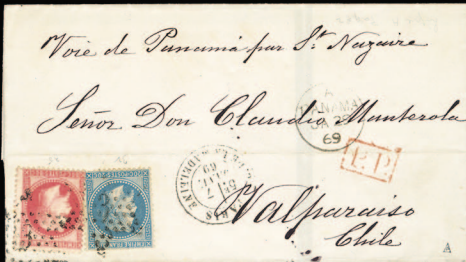 Voie de Panama par St Nazaire
Señor Don Claudio Manterola
A
PANAMA
JA 29
69
P.P.
PARIS
5E
7
69
Valparaiso
Chile
A